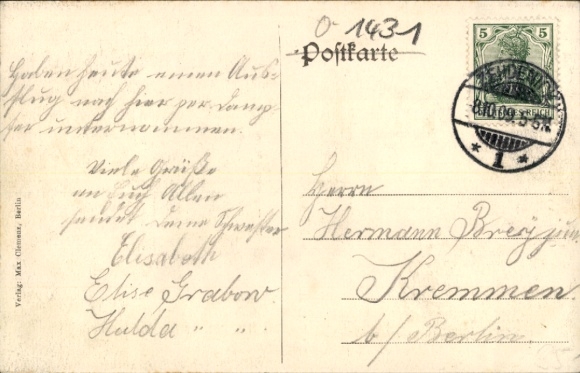 O 1431
Postkarte
5
ZEHDENICK
8.10.09. 5-6 N.
* 1 *
REICH
Haben heute einen Aus-
flug nach hier per Damp-
fer unternommen.
Viele Grüße
an Euch Allen
sendet Deine Schwester
Elisabeth
Elise Grabow.
Hulda " "
Herrn
Hermann
Kremmen
b/Berlin.
Verlag: Max Clemens, Berlin